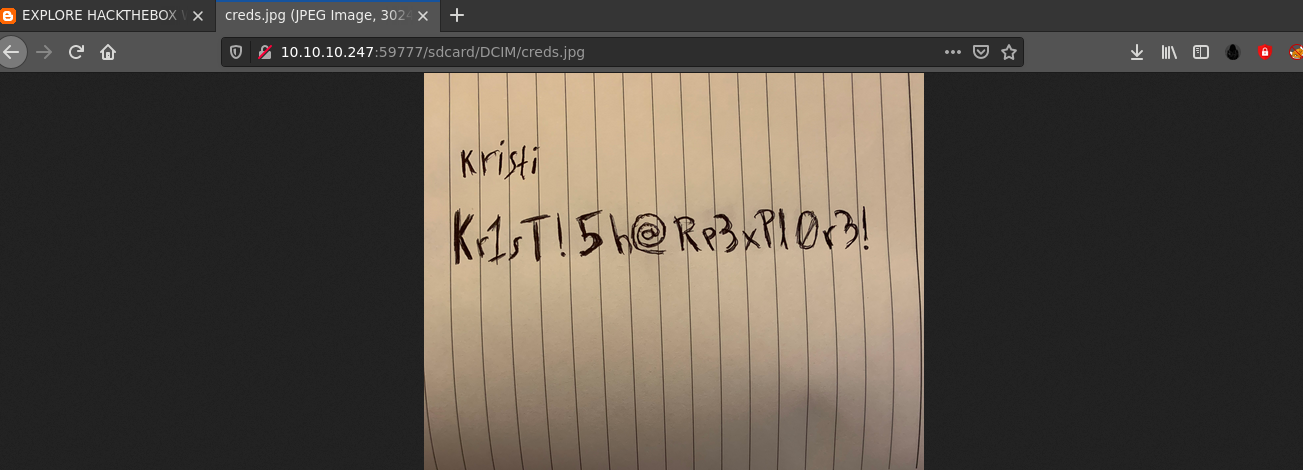 EXPLORE HACKTHEBOX
creds.jpg (JPEG Image, 3024
10.10.10.247:59777/sdcard/DCIM/creds.jpg
Kristi
Kr1sT!5h@Rp3xPl0r3!